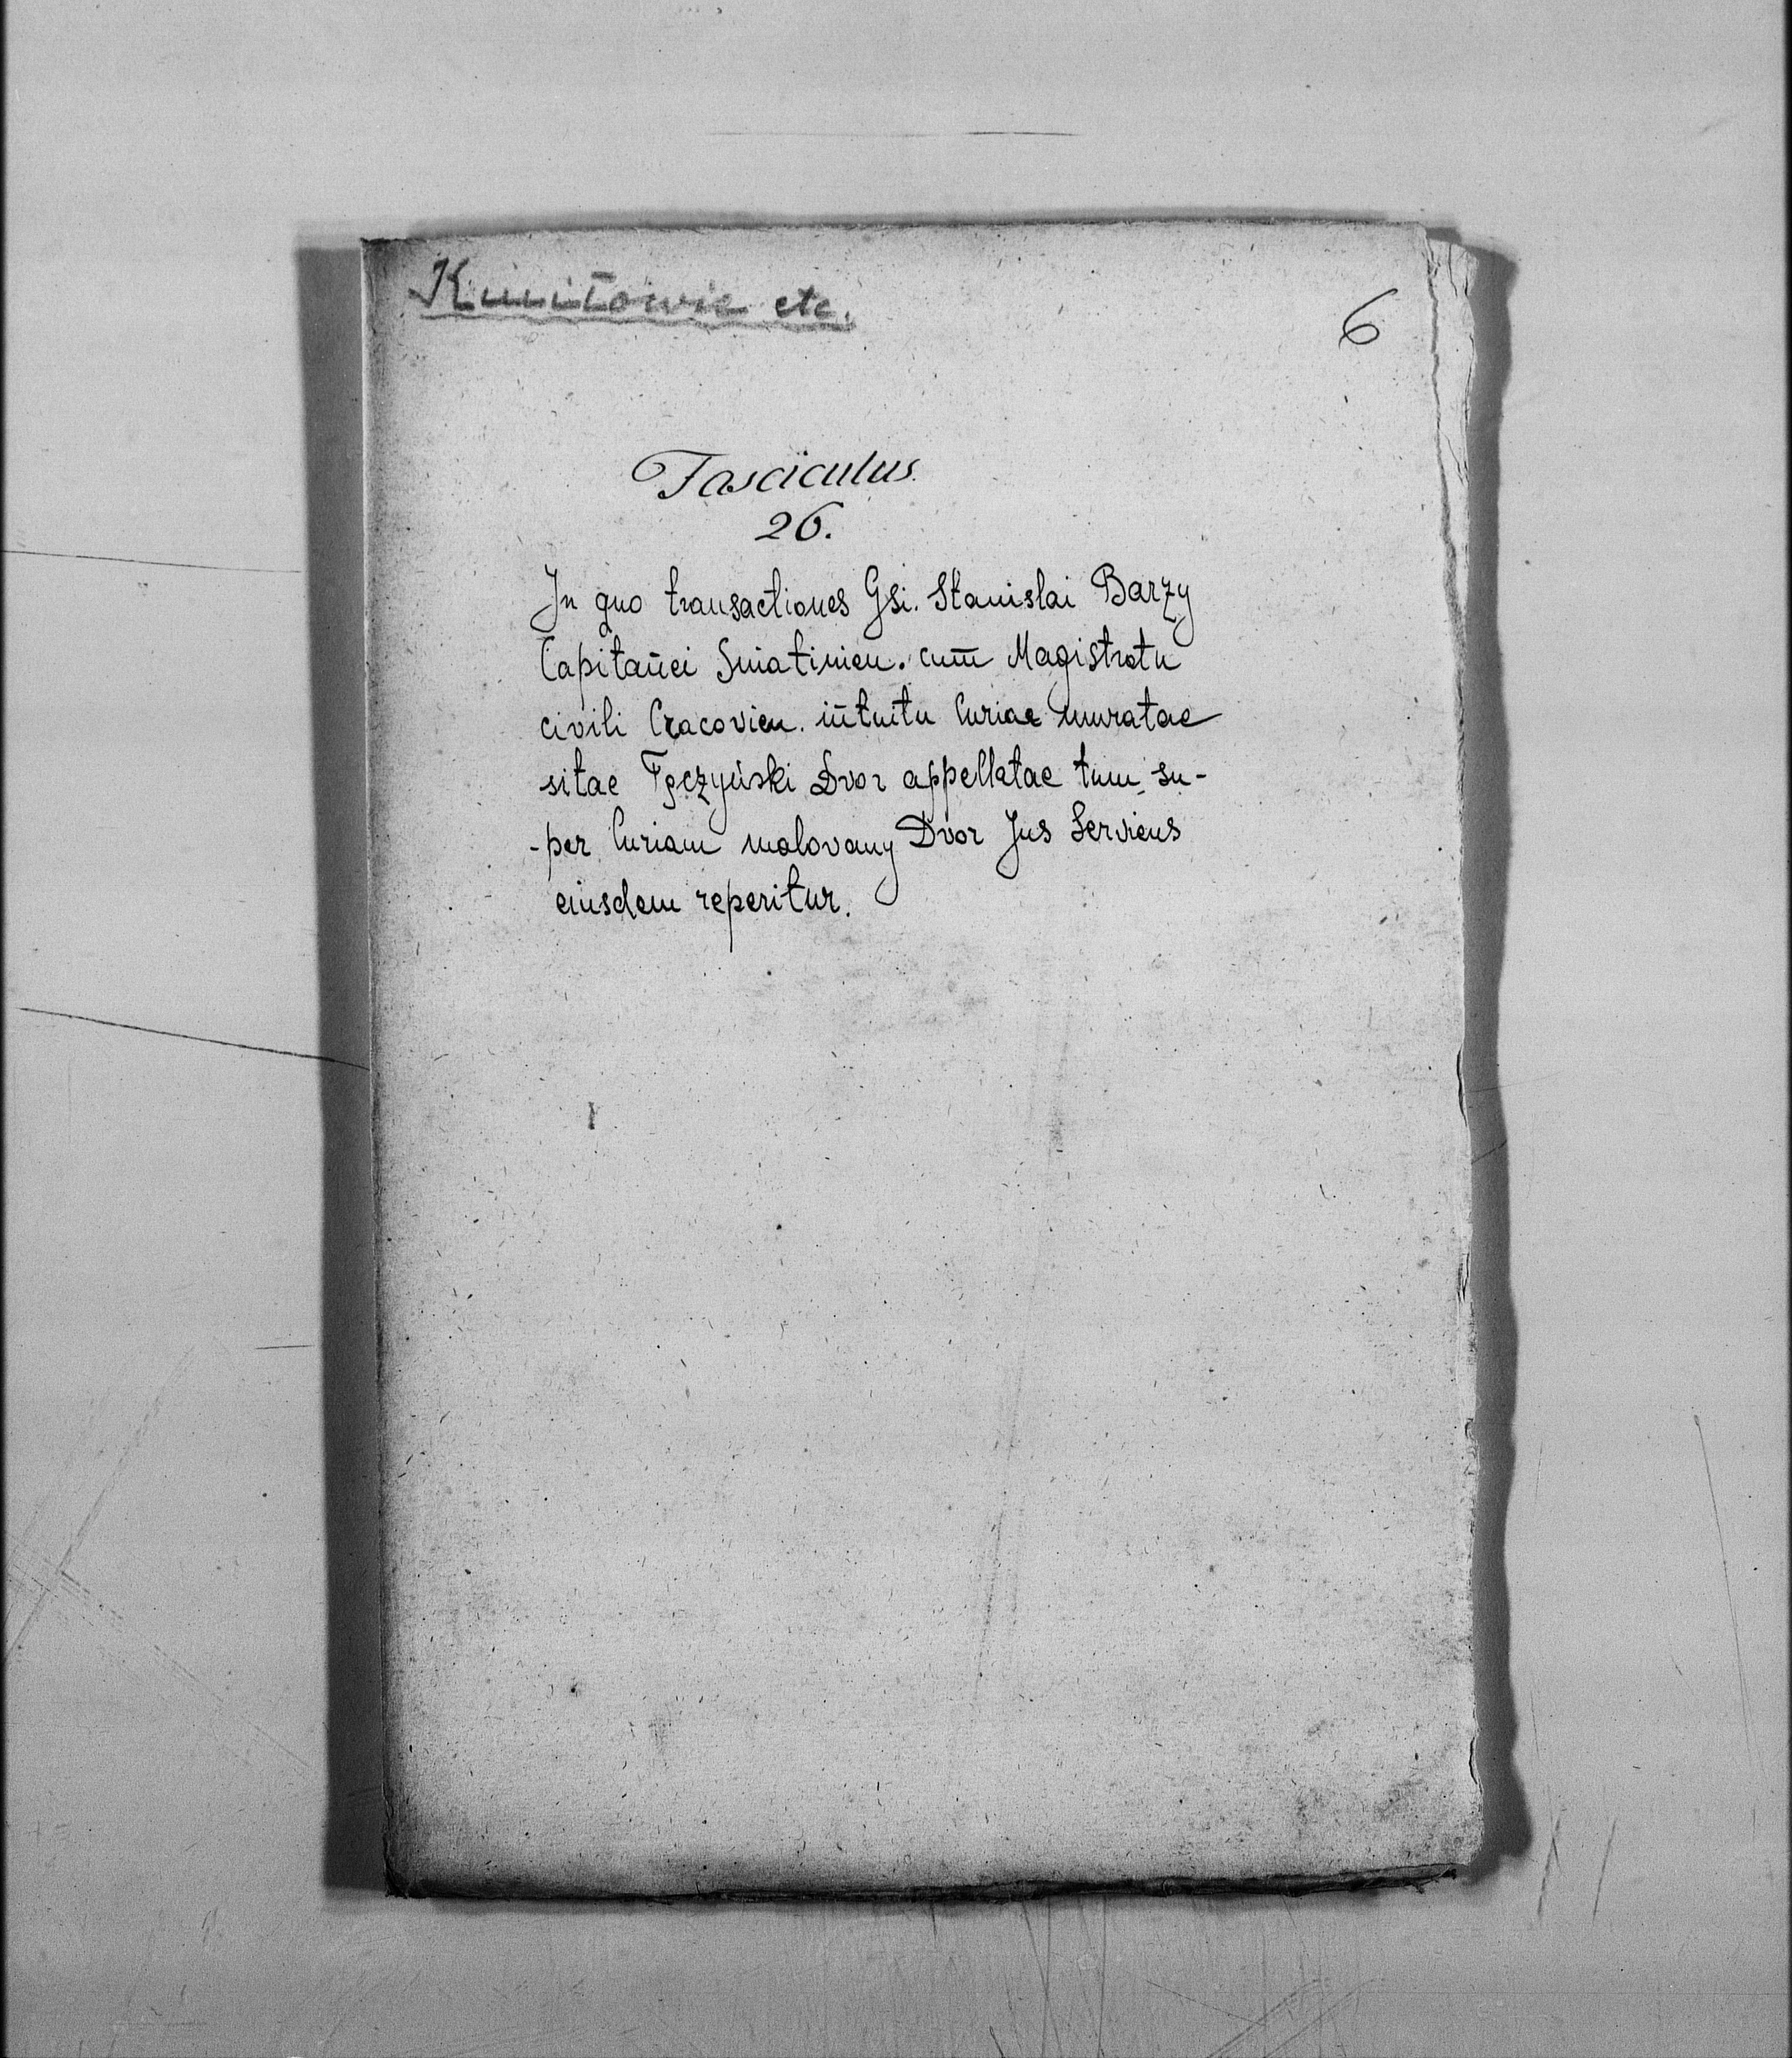 Kmitowie etc.
6
Fasciculus
26.
In quo transactiones Gsi. Stanislai Barzy
Capitanei Sniatinien. cum Magistratu
civili Cracovien. intuitu Curiae muratae
sitae Tęczyński Dvor appellatae tum su-
-per Curiam malovany Dvor Jus Serviens
eiusdem reperitur.